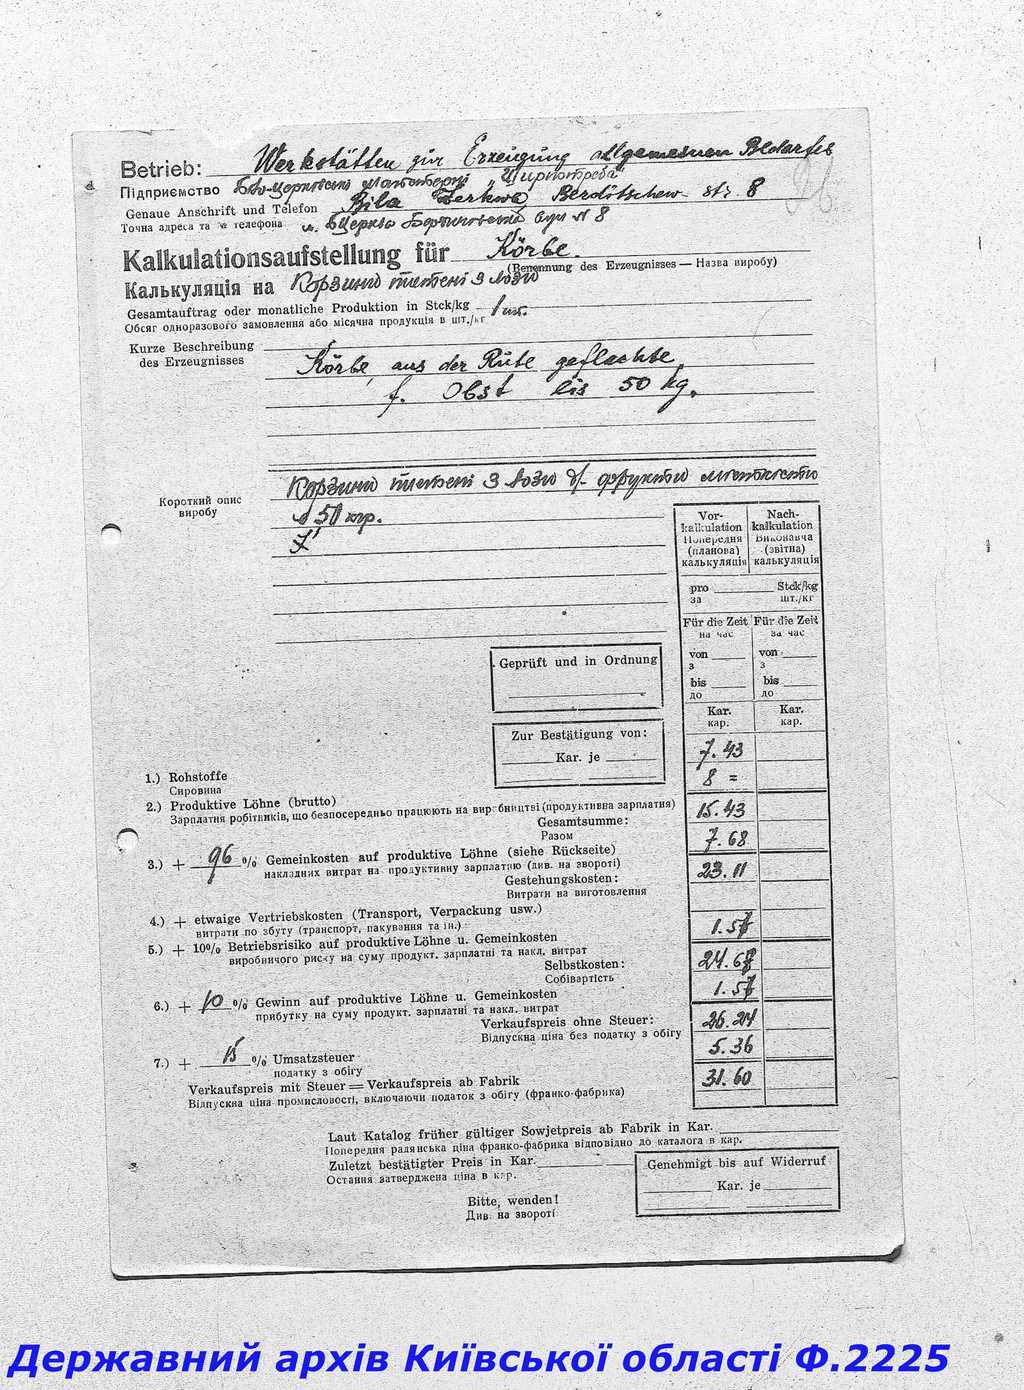 Betrieb: Werkstätten zur Erzeugung allgemeinen Bedarfes
Підприємство Б-Церківські майстерні „Ширпотреба"
Genaue Anschrift und Telefon Bila Zerkwa, Berditschew- str 8
Точна адреса та № телефона м. БЦерква вул № 8
26
Kalkulationsaufstellung für Körbe.
(Benennung des Erzeugnisses — Назва виробу)
Калькуляція на Корзини плетені з лози
Gesamtauftrag oder monatliche Produktion in Stck/kg 1 шт.
Обсяг одноразового замовлення або місячна продукція в шт./кг
Kurze Beschreibung
des Erzeugnisses
Körbe, aus der Rute geflachte,
f. Obst bis 50 kg.
Короткий опис
виробу
Корзини плетені з лози д/ фрукти місткістю
50 кгр.
Vor-
kalkulation
Попередня
(планова)
калькуляція
Nach-
kalkulation
Виконавча
(звітна)
калькуляція
pro Stck/kg
за шт./кг
Für die Zeit Für die Zeit
на час за час
von von
з з
bis bis
до до
Kar. Kar.
кар. кар.
Geprüft und in Ordnung
Zur Bestätigung von:
Kar. je
1.) Rohstoffe 7.43
Сировина
2.) Produktive Löhne (brutto) 8 =
Зарплатня робітників, що безпосередньо працюють на виробництві (продуктивна зарплатня)
Gesamtsumme: 15.43
Разом
3.) + 96 % Gemeinkosten auf produktive Löhne (siehe Rückseite) 7.68
накладних витрат на продуктивну зарплатню (див. на звороті)
Gestehungskosten: 23.11
Витрати на виготовлення
4.) + etwaige Vertriebskosten (Transport, Verpackung usw.)
витрати по збуту (транспорт, пакування та ін.)
5.) + 10% Betriebsrisiko auf produktive Löhne u. Gemeinkosten 1.57
виробничого риску на суму продукт. зарплатні та накл. витрат
Selbstkosten: 24.67
Собівартість
6.) + 10 % Gewinn auf produktive Löhne u. Gemeinkosten 1.57
прибутку на суму продукт. зарплатні та накл. витрат
Verkaufspreis ohne Steuer: 26.24
Відпускна ціна без податку з обігу
7.) + 15 % Umsatzsteuer 5.36
податку з обігу
Verkaufspreis mit Steuer = Verkaufspreis ab Fabrik 31.60
Відпускна ціна промисловості, включаючи податок з обігу (франко-фабрика)
Laut Katalog früher gültiger Sowjetpreis ab Fabrik in Kar.
Попередня радянська ціна франко-фабрика відповідно до каталога в кар.
Zuletzt bestätigter Preis in Kar.
Остання затверджена ціна в кар.
Genehmigt bis auf Widerruf
Kar. je
Bitte, wenden!
Див. на звороті
Державний архів Київської області Ф.2225